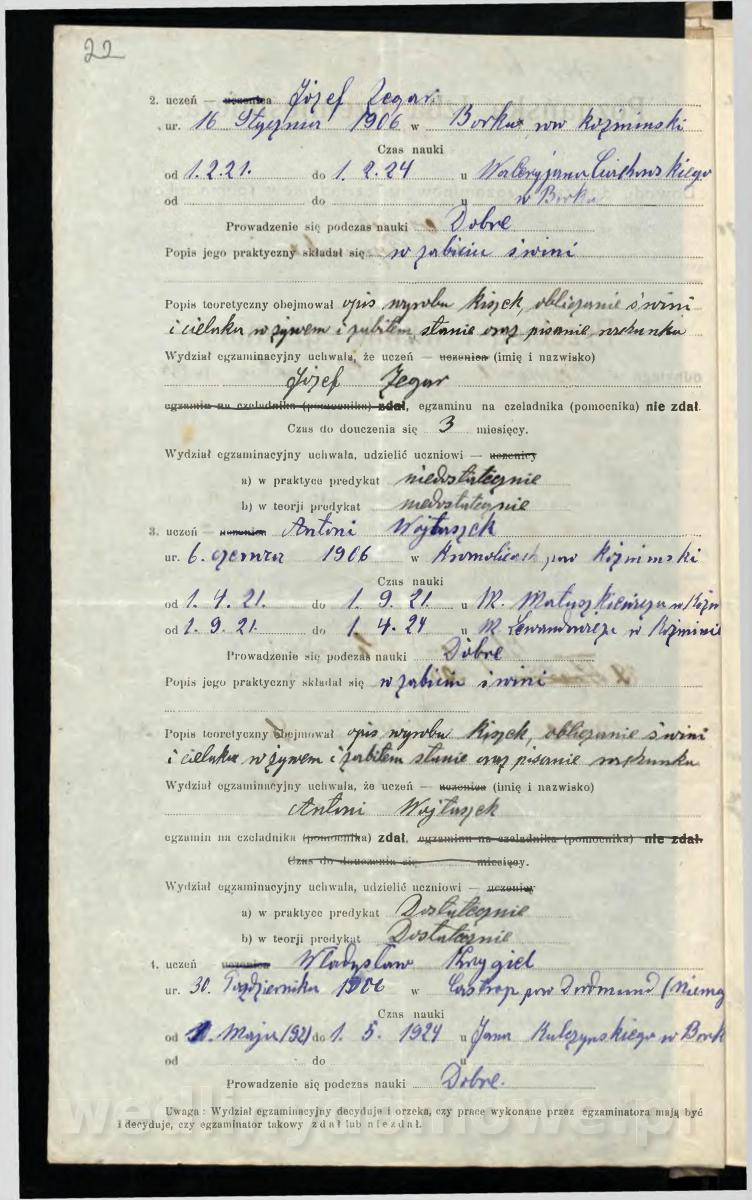 22
2. uczeń — uczenica Józef Zegar
ur. 16 Stycznia 1906 w Borku pow Koźminski
Czas nauki
od 1.2.21. do 1.2.24 u Waleryjana
od do u w Borku
Prowadzenie się podczas nauki Dobre
Popis jego praktyczny składał się w zabiciu świni
Popis teoretyczny obejmował opis wyrobu kiszek, obliczanie świni
i cielaka w żywem i zabitem stanie oraz pisanie rachunku
Wydział egzaminacyjny uchwala, że uczeń — uczenica (imię i nazwisko)
Józef Zegar
egzamin na czeladnika (pomocnika) zdał, egzaminu na czeladnika (pomocnika) nie zdał.
Czas do douczenia się 3 miesięcy.
Wydział egzaminacyjny uchwala, udzielić uczniowi — uczenicy
a) w praktyce predykat niedostatecznie
b) w teorji predykat niedostatecznie
3. uczeń — uczenica Antoni Wojtaszek
ur. 6. czerwca 1906 w Kromolicach, pow Koźminski
Czas nauki
od 1.4.21. do 1.9.21. u M.
od 1.9.21. do 1.4.24 u M Lewandowskiego w Koźminie
Prowadzenie się podczas nauki Dobre
Popis jego praktyczny składał się w zabiciu świni
Popis teoretyczny obejmował opis wyrobu kiszek, obliczanie świni
i cielaka w żywem i zabitem stanie oraz pisanie rachunku
Wydział egzaminacyjny uchwala, że uczeń — uczenica (imię i nazwisko)
Antoni Wojtaszek
egzamin na czeladnika (pomocnika) zdał, egzaminu na czeladnika (pomocnika) nie zdał.
Czas do douczenia się miesięcy.
Wydział egzaminacyjny uchwala, udzielić uczniowi — uczenicy
a) w praktyce predykat Dostatecznie
b) w teorji predykat Dostatecznie
4. uczeń uczenica Władysław Krygiel
ur. 30. Październiku 1906 w Castrop pow Dordmund (Niemc
Czas nauki
od 1. Maja 1921 do 1. 5. 1924 u Jana Kulczynskiego w Bork
od do u
Prowadzenie się podczas nauki Dobre.
Uwaga: Wydział egzaminacyjny decyduje i orzeka, czy prace wykonane przez egzaminatora mają być
i decyduje, czy egzaminator takowy zdał lub nie zdał.
wedlinydomowe.pl